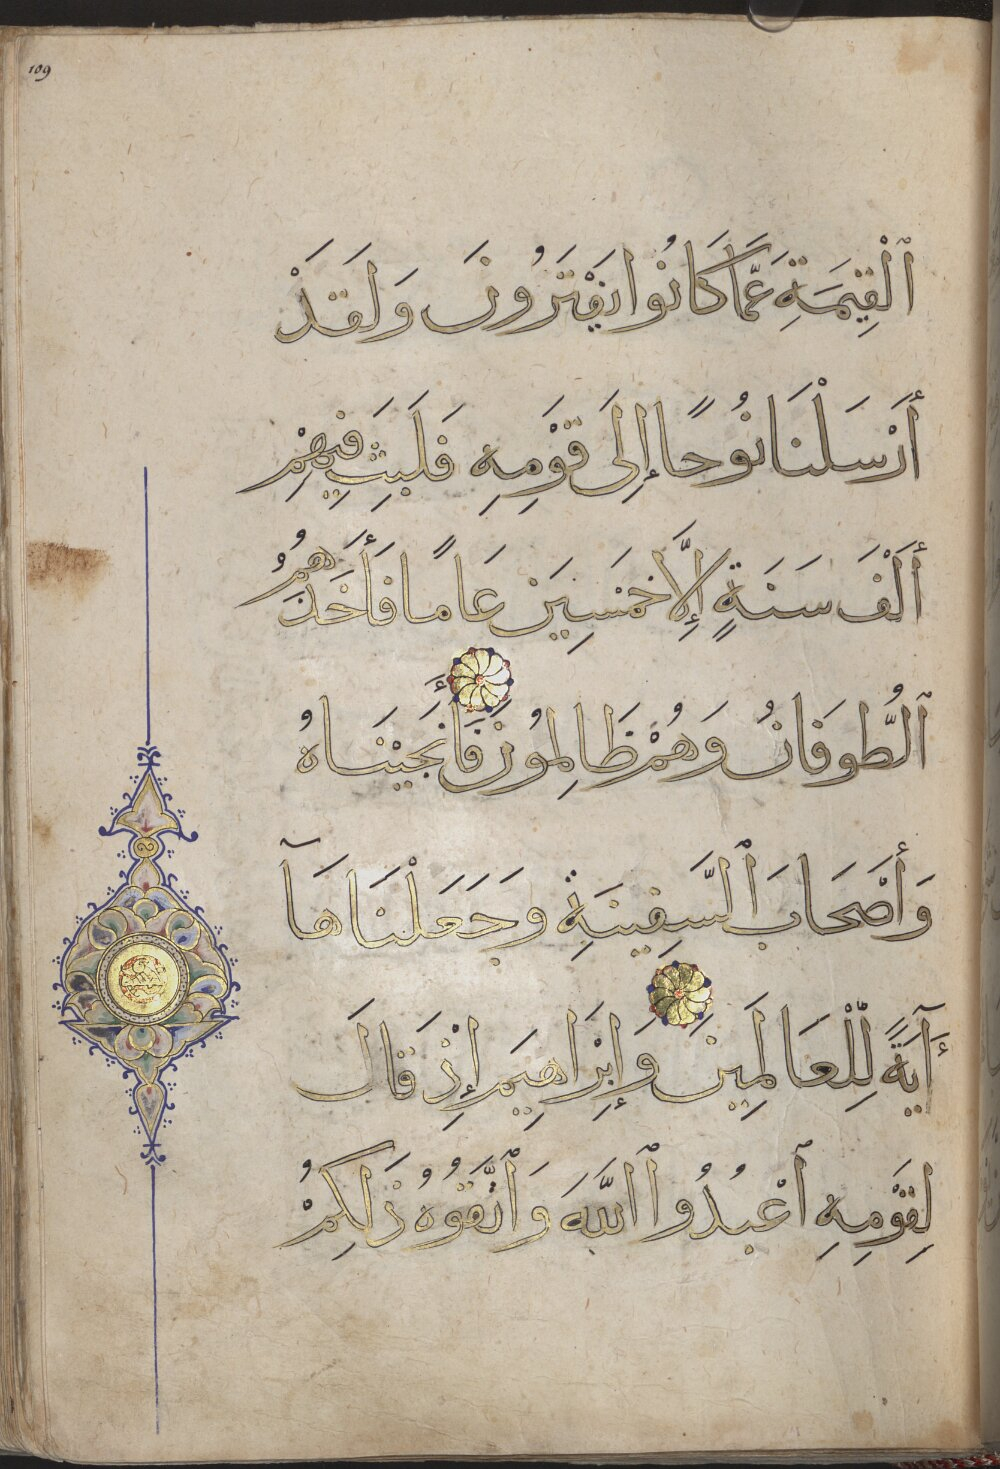 109
ٱلْقِيَمَةِ عَمَّا كَانُوا يَفْتَرُونَ وَلَقَدْ
أَرْسَلْنَا نُوحًا إِلَى قَوْمِهِ فَلَبِثَ فِيهِمْ
أَلْفَ سَنَةٍ إِلَّا خَمْسِينَ عَامًا فَأَخَذَهُمُ
ٱلطُّوفَانُ وَهُمْ ظَالِمُونَ فَأَنجَيْنَاهُ
وَأَصْحَابَ ٱلسَّفِينَةِ وَجَعَلْنَاهَآ
ءَآيَةً لِلْعَالَمِينَ وَإِبْرَاهِيمَ إِذْ قَالَ
لِقَوْمِهِ ٱعْبُدُوا ٱللَّهَ وَٱتَّقُوهُ ذَلِكُمْ